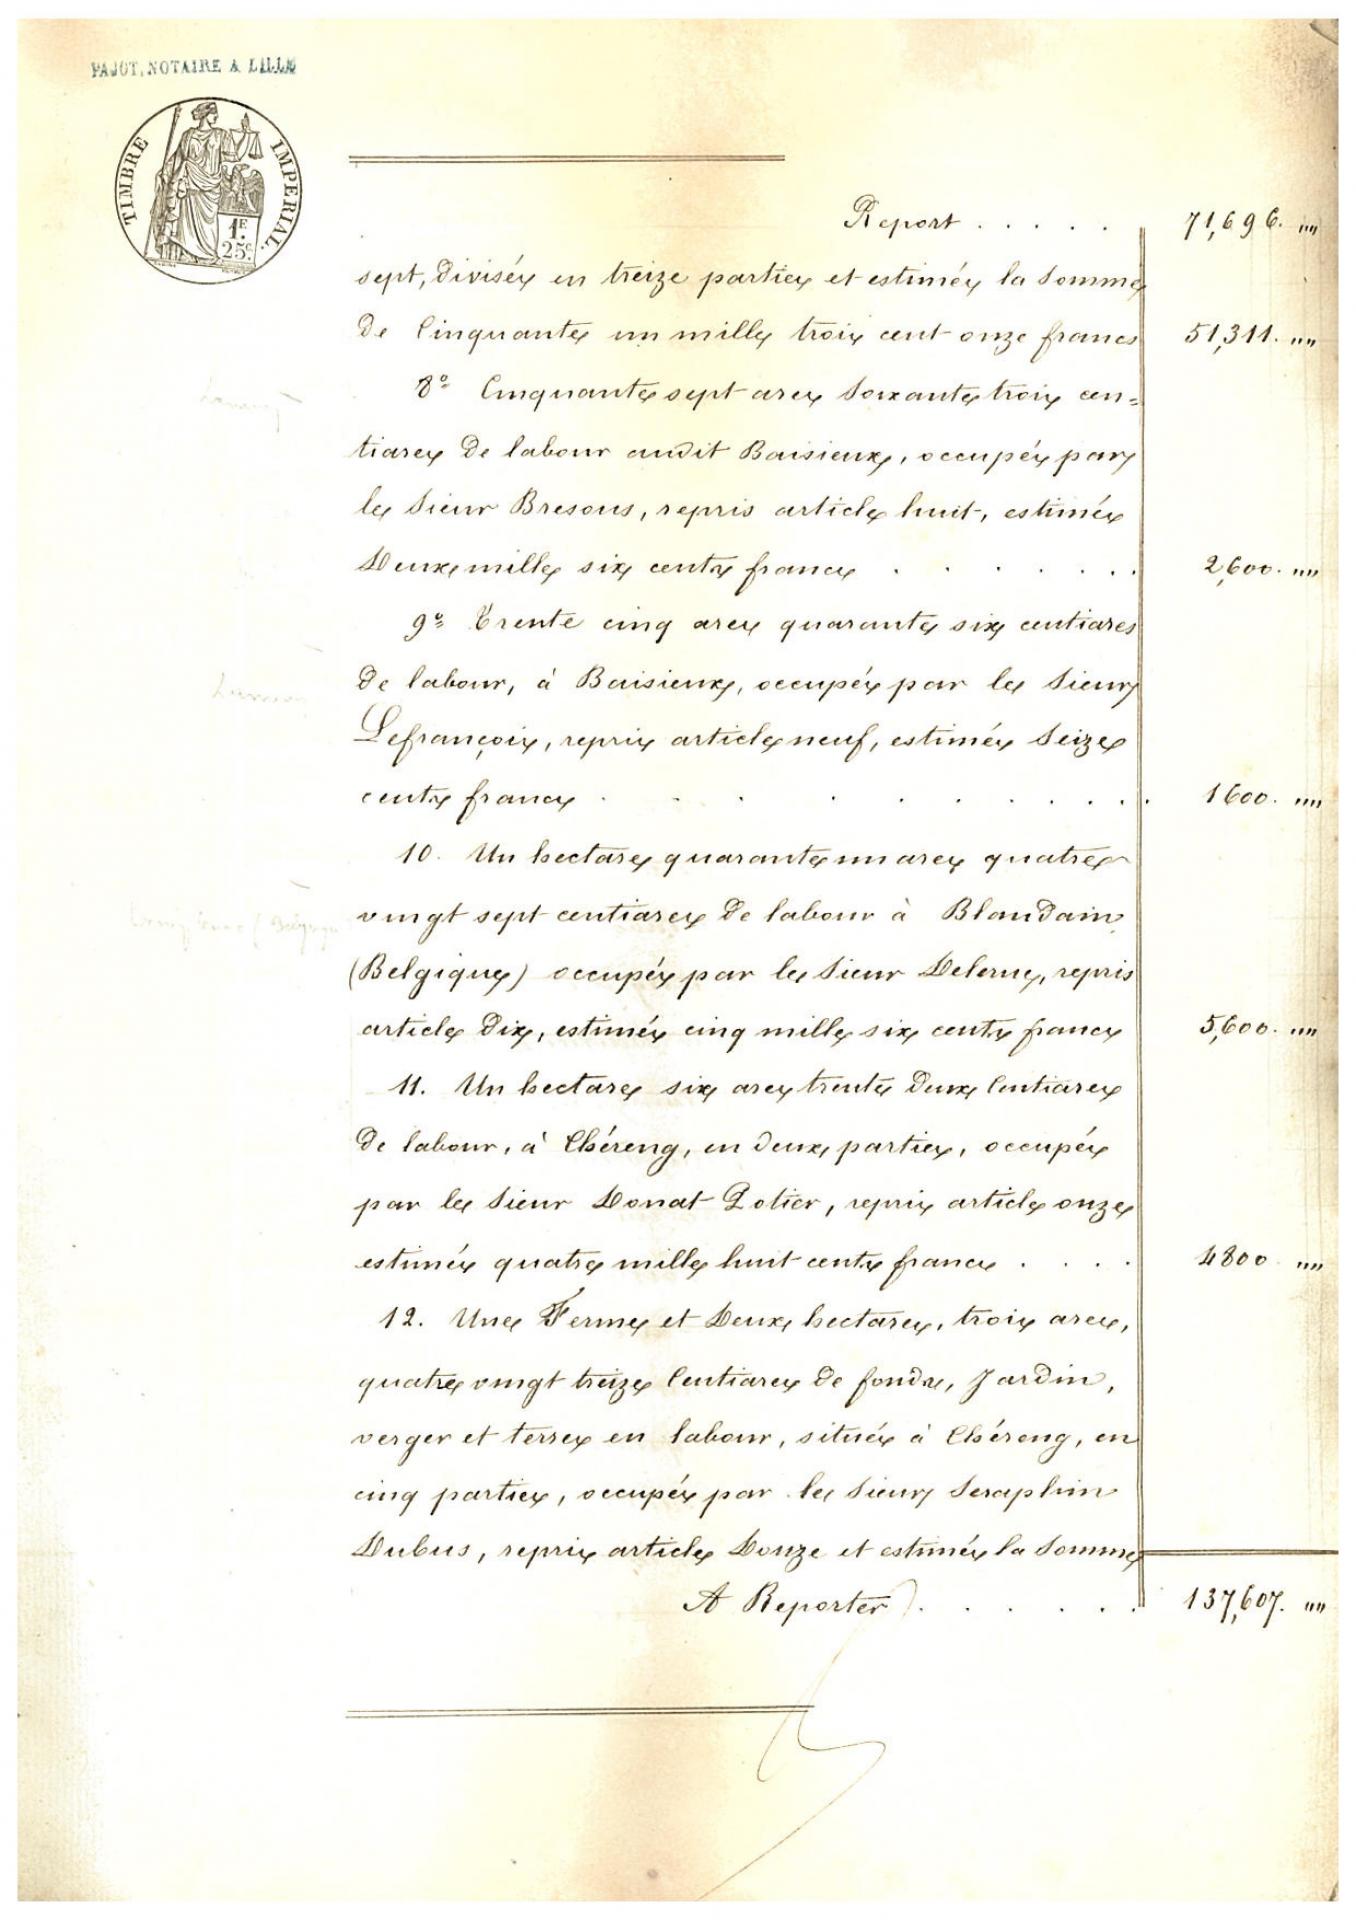 PAJOT, NOTAIRE A LILLE
TIMBRE IMPERIAL.
1F.
25c.
Report . . . . . 71,696. ""
sept, divisés en treize parties et estimés la somme
de Cinquante un mille trois cent onze francs 51,311. ""
8° Cinquante sept ares soixante trois cen=
tiares de labour audit Baisieux, occupés par
le sieur Bresous, repris article huit, estimés
Deux mille six cents francs . . . . . . . 2,600. ""
9° Trente cinq ares quarante six centiares
de labour, à Baisieux, occupés par le sieur
Lefrançois, repris article neuf, estimés seize
cents francs . . . . . . . . . . 1600. ""
10. Un hectare quarante un ares quatre
vingt sept centiares de labour à Blandain
(Belgique) occupés par le sieur Delerue, repris
article dix, estimés cinq mille six cents francs 5,600. ""
11. Un hectare six ares trente deux Centiares
de labour, à Chéreng, en deux parties, occupés
par le sieur Donat Potier, repris article onze
estimés quatre mille huit cents francs . . . . 4800 ""
12. Une Ferme et Deux hectares, trois ares,
quatre vingt treize Centiares de fonds, Jardin,
verger et terres en labour, située à Chéreng, en
cinq parties, occupés par le sieur Seraphin
Dubus, repris article Douze et estimés la somme
A Reporter . . . . . . 137,607. ""